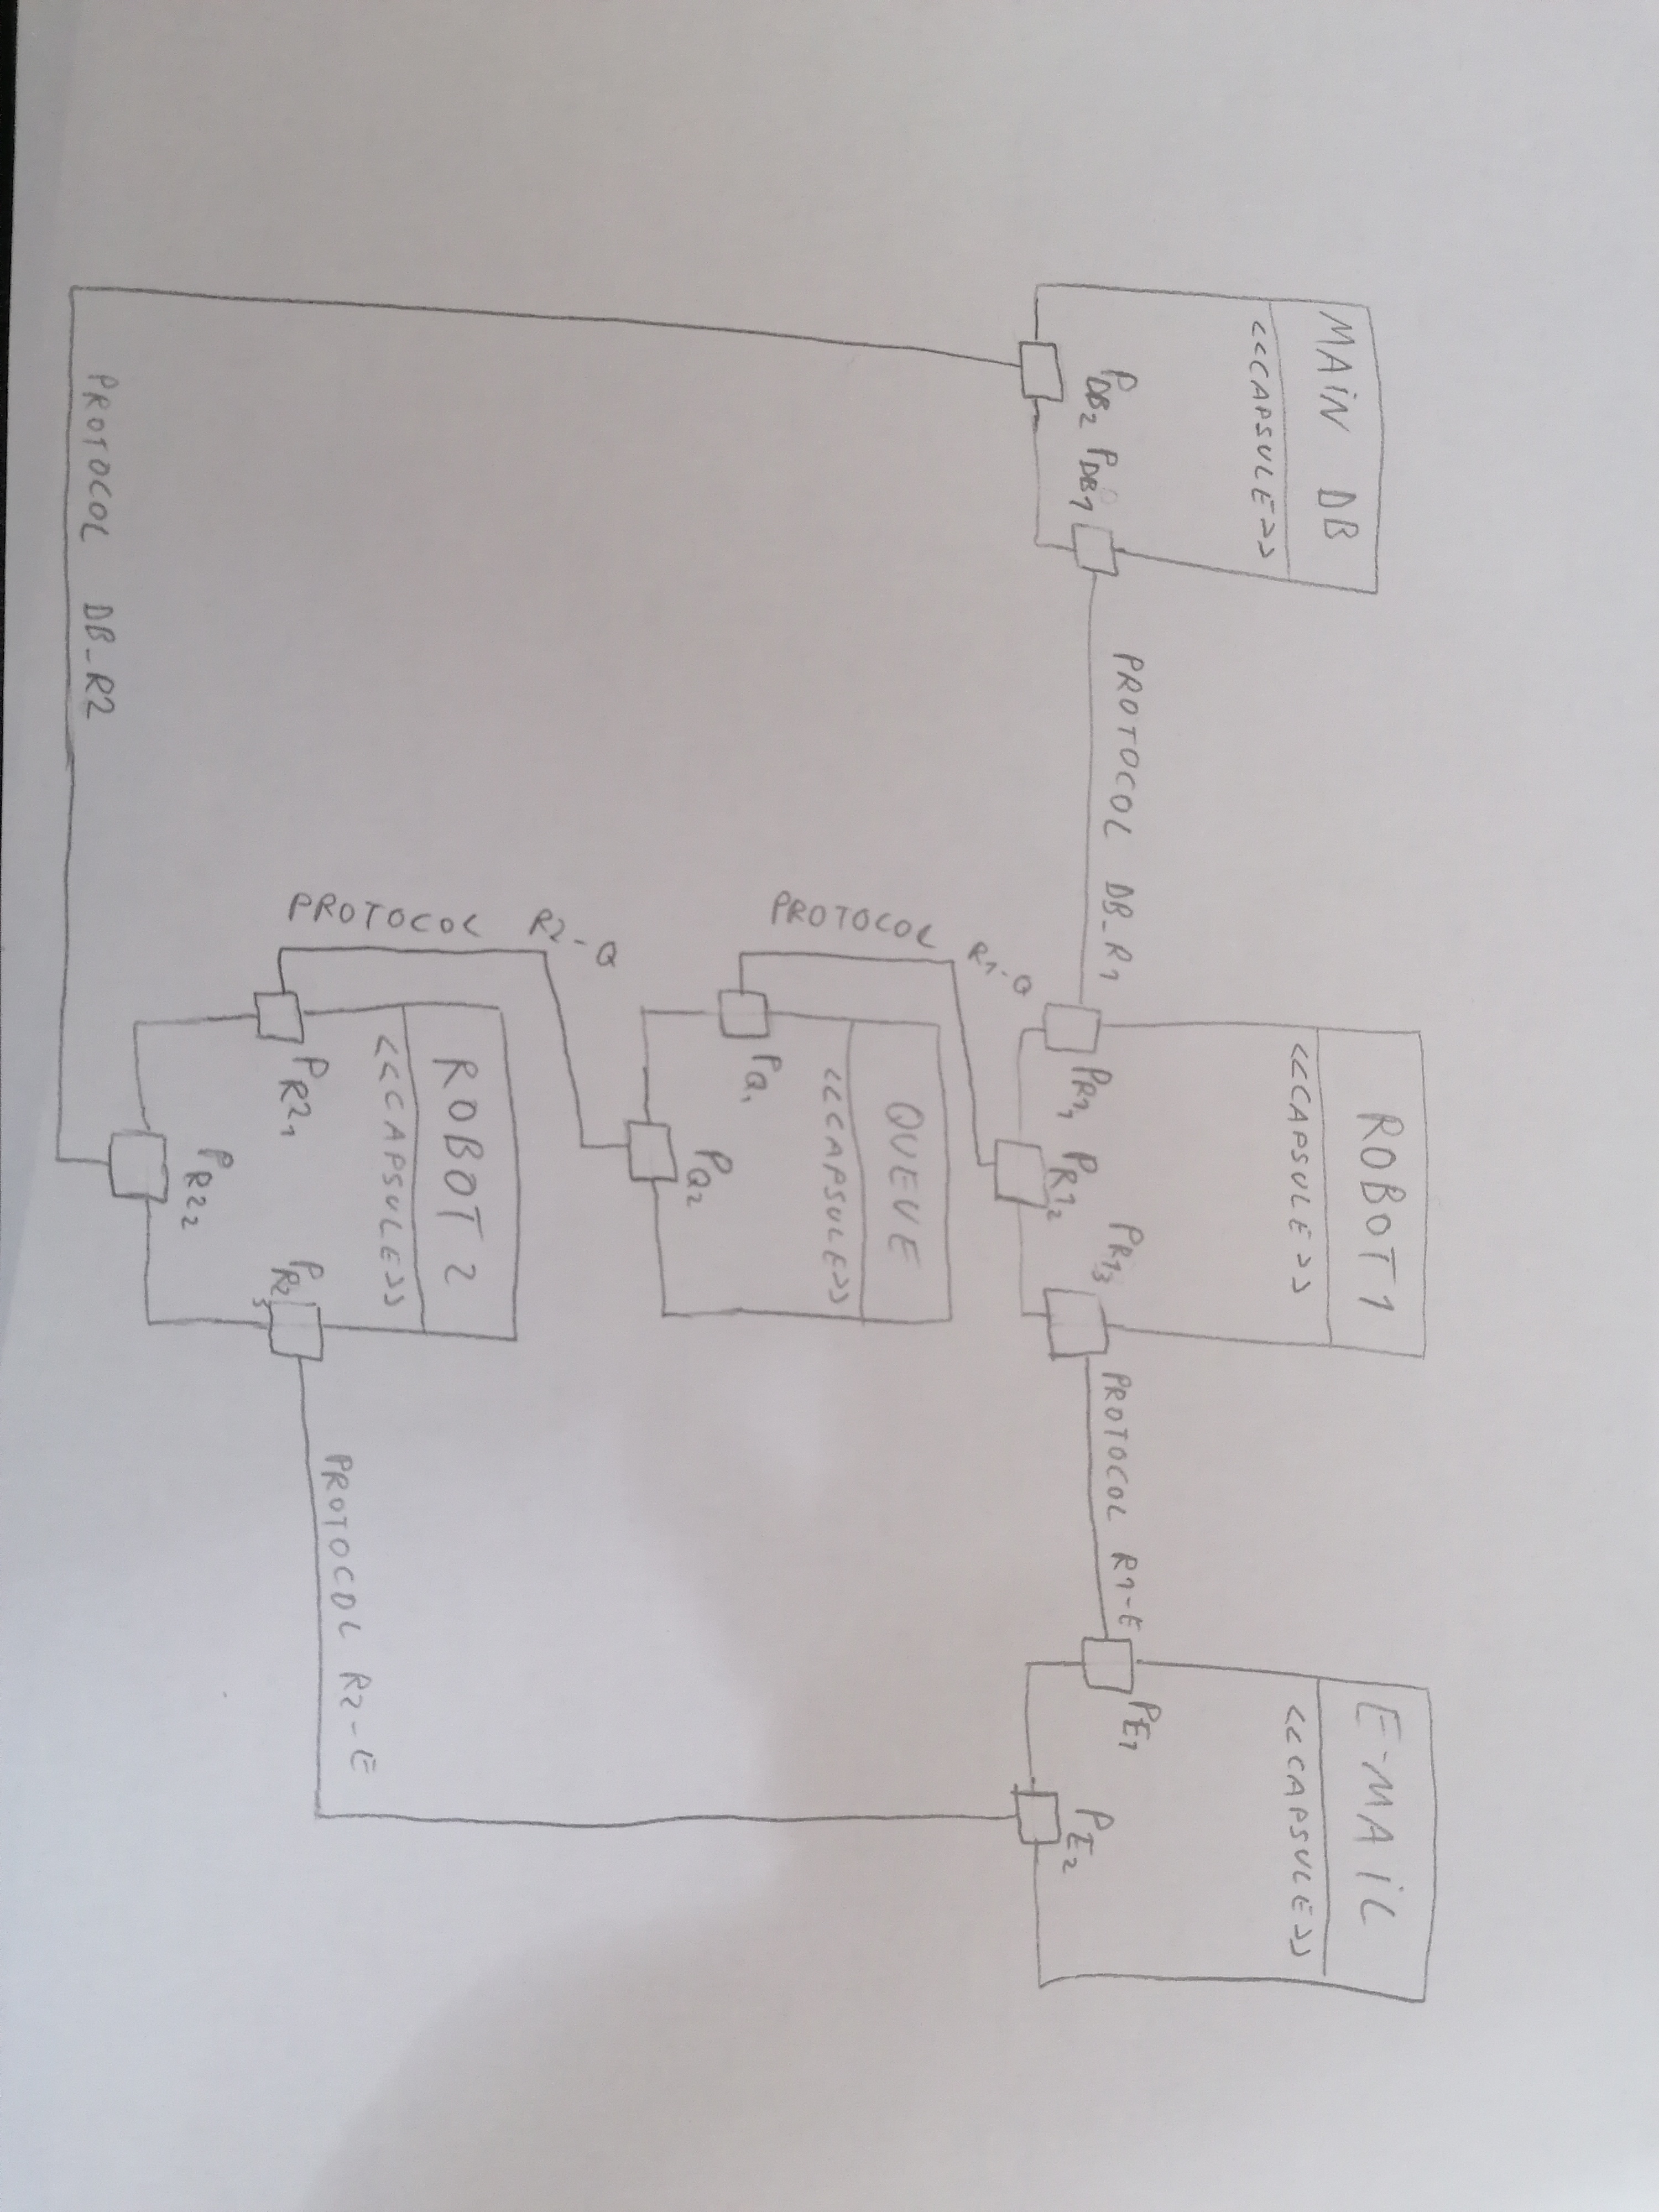 MAIN DB
<<CAPSULE>>
P DB2
P DB1
PROTOCOL DB_R1
ROBOT 1
<<CAPSULE>>
P R1 1
P R1 2
P R1 3
PROTOCOL R1-E
E-MAIL
<<CAPSULE>>
P E1
P E2
PROTOCOL R1-Q
QUEUE
<<CAPSULE>>
P Q1
P Q2
PROTOCOL R2-Q
ROBOT 2
<<CAPSULE>>
P R2 1
P R2 3
P R2 2
PROTOCOL R2-E
PROTOCOL DB_R2